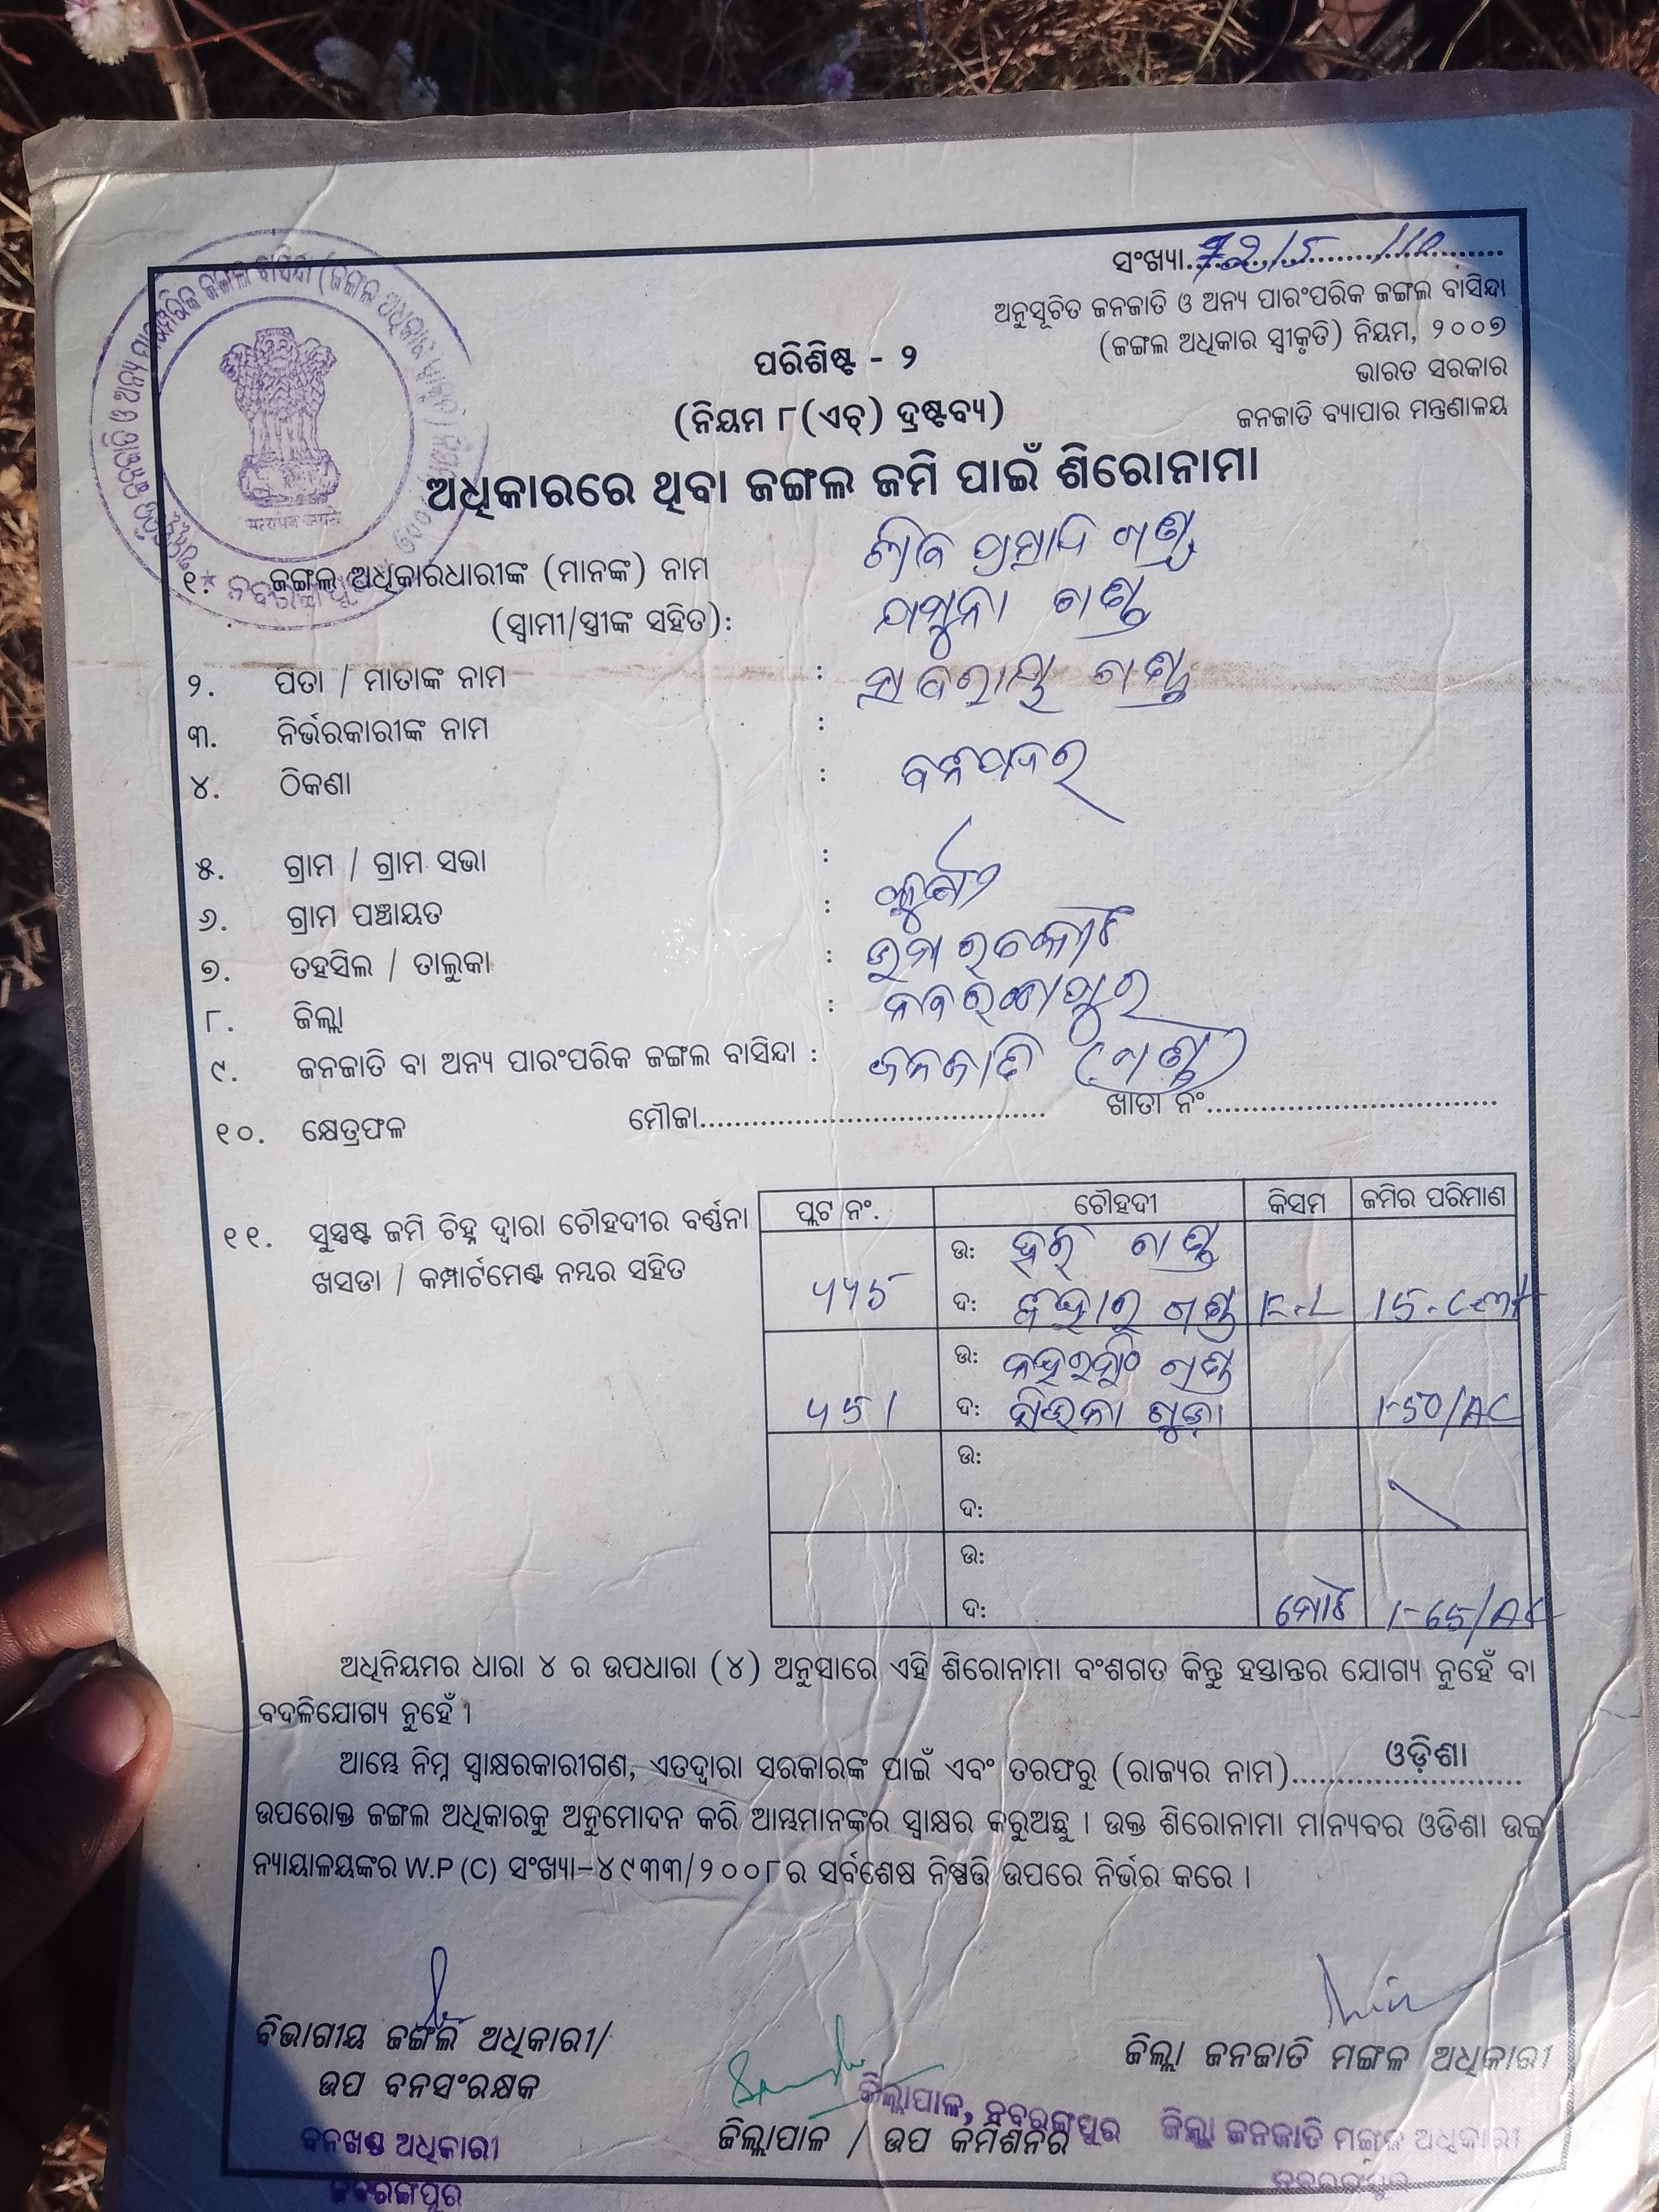 ସଂଖ୍ୟା
ଅନୁସୂଚିତ ଜନଜାତି ଓ ଅନ୍ୟ ପାରଂପରିକ ଜଙ୍ଗଲ ବାସିନ୍ଦା
(ଜଙ୍ଗଲ ଅଧିକାର ସ୍ୱୀକୃତି) ନିୟମ, ୨୦୦୭
ଭାରତ ସରକାର
ଜନଜାତି ବ୍ୟାପାର ମନ୍ତ୍ରଣାଳୟ
ପରିଶିଷ୍ଟ - ୨
(ନିୟମ ୮(ଏଚ୍) ଦ୍ରଷ୍ଟବ୍ୟ)
ଅଧିକାରରେ ଥିବା ଜଙ୍ଗଲ ଜମି ପାଇଁ ଶିରୋନାମା
୧. ଜଙ୍ଗଲ ଅଧିକାରଧାରୀଙ୍କ (ମାନଙ୍କ) ନାମ ଗଣ୍ଡ
(ସ୍ୱାମୀ/ସ୍ତ୍ରୀଙ୍କ ସହିତ): ଯମୁନା ଗଣ୍ଡ
୨. ପିତା / ମାତାଙ୍କ ନାମ : ଗଣ୍ଡ
୩. ନିର୍ଭରକାରୀଙ୍କ ନାମ :
୪. ଠିକଣା :
୫. ଗ୍ରାମ / ଗ୍ରାମ ସଭା :
୬. ଗ୍ରାମ ପଞ୍ଚାୟତ :
୭. ତହସିଲ / ତାଲୁକା : ଉମରକୋଟ
୮. ଜିଲ୍ଲା : ନବରଙ୍ଗପୁର
୯. ଜନଜାତି ବା ଅନ୍ୟ ପାରଂପରିକ ଜଙ୍ଗଲ ବାସିନ୍ଦା : ଜନଜାତି (ଗଣ୍ଡ)
୧୦. କ୍ଷେତ୍ରଫଳ ମୌଜା ଖାତା ନଂ
୧୧. ସୁସ୍ପଷ୍ଟ ଜମି ଚିହ୍ନ ଦ୍ୱାରା ଚୌହଦୀର ବର୍ଣ୍ଣନା
ଖସଡା / କମ୍ପାର୍ଟମେଣ୍ଟ ନମ୍ବର ସହିତ
ପ୍ଲଟ ନଂ. ଚୌହଦୀ କିସମ ଜମିର ପରିମାଣ
ଉ: ହରି ଗଣ୍ଡ
ଦ: ଗଣ୍ଡ
ଉ: ଗଣ୍ଡ
ଦ: 1-50/AC
ଉ:
ଦ:
ଉ:
ଦ: ମୋଟ 1-65/AC
ଅଧିନିୟମର ଧାରା ୪ ର ଉପଧାରା (୪) ଅନୁସାରେ ଏହି ଶିରୋନାମା ବଂଶଗତ କିନ୍ତୁ ହସ୍ତାନ୍ତର ଯୋଗ୍ୟ ନୁହେଁ ବା
ବଦଳିଯୋଗ୍ୟ ନୁହେଁ ।
ଆମ୍ଭେ ନିମ୍ନ ସ୍ୱାକ୍ଷରକାରୀଗଣ, ଏତଦ୍ୱାରା ସରକାରଙ୍କ ପାଇଁ ଏବଂ ତରଫରୁ (ରାଜ୍ୟର ନାମ) ଓଡ଼ିଶା
ଉପରୋକ୍ତ ଜଙ୍ଗଲ ଅଧିକାରକୁ ଅନୁମୋଦନ କରି ଆମ୍ଭମାନଙ୍କର ସ୍ୱାକ୍ଷର କରୁଅଛୁ । ଉକ୍ତ ଶିରୋନାମା ମାନ୍ୟବର ଓଡିଶା ଉଚ୍ଚ
ନ୍ୟାୟାଳୟଙ୍କର W.P (C) ସଂଖ୍ୟା-୪୯୩୩/୨୦୦୮ ର ସର୍ବଶେଷ ନିଷ୍ପତ୍ତି ଉପରେ ନିର୍ଭର କରେ ।
ବିଭାଗୀୟ ଜଙ୍ଗଲ ଅଧିକାରୀ/
ଉପ ବନସଂରକ୍ଷକ
ବନଖଣ୍ଡ ଅଧିକାରୀ
ନବରଙ୍ଗପୁର
ଜିଲ୍ଲାପାଳ, ନବରଙ୍ଗପୁର
ଜିଲ୍ଲାପାଳ / ଉପ କମିଶନର
ଜିଲ୍ଲା ଜନଜାତି ମଙ୍ଗଳ ଅଧିକାରୀ
ଜିଲ୍ଲା ଜନଜାତି ମଙ୍ଗଳ ଅଧିକାରୀ
ନବରଙ୍ଗପୁର